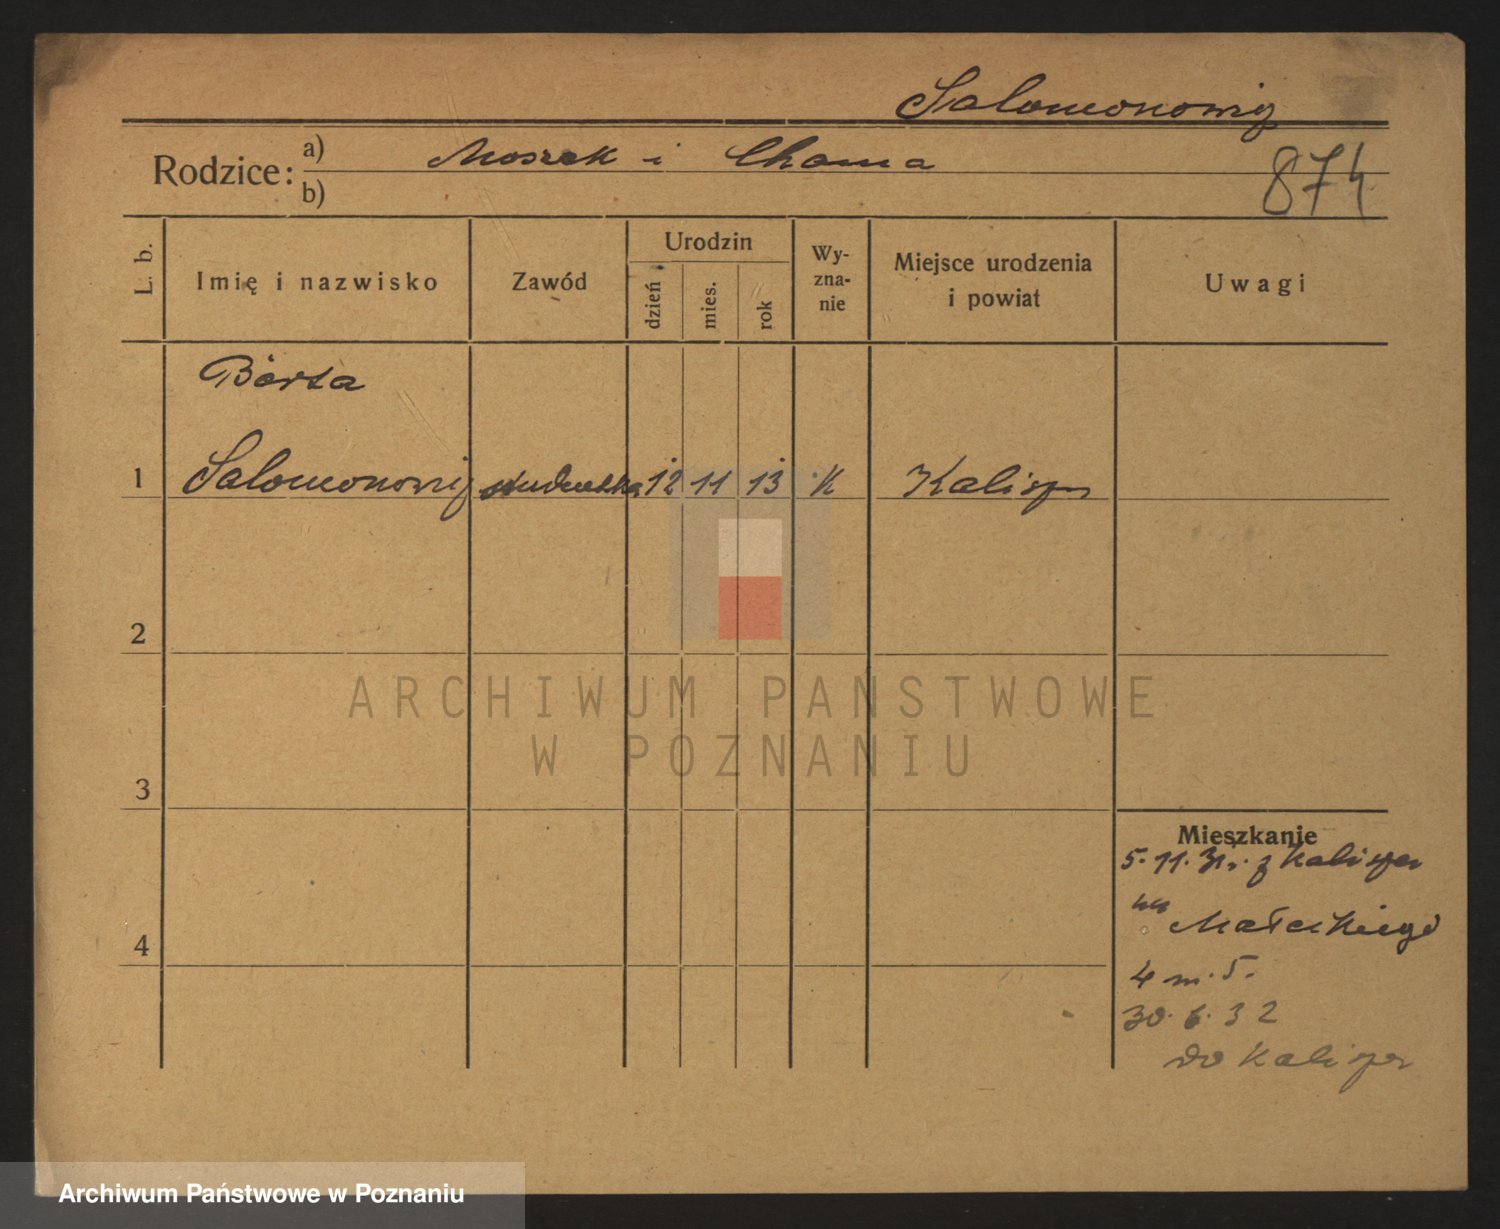 Salomonowicz
Rodzice: a) Moszek i Chama
b)
874
L. b.
Imię i nazwisko
Zawód
Urodzin
dzień
mies.
rok
Wy-
zna-
nie
Miejsce urodzenia
i powiat
Uwagi
Berta
1 Salomonowicz studentka 12 11 13 Kalisz
2
3
4
Mieszkanie
5. 11. 31. z Kalisza
Małeckiego
4 m. 5.
30. 6. 32
do Kalisza
ARCHIWUM PAŃSTWOWE
W POZNANIU
Archiwum Państwowe w Poznaniu